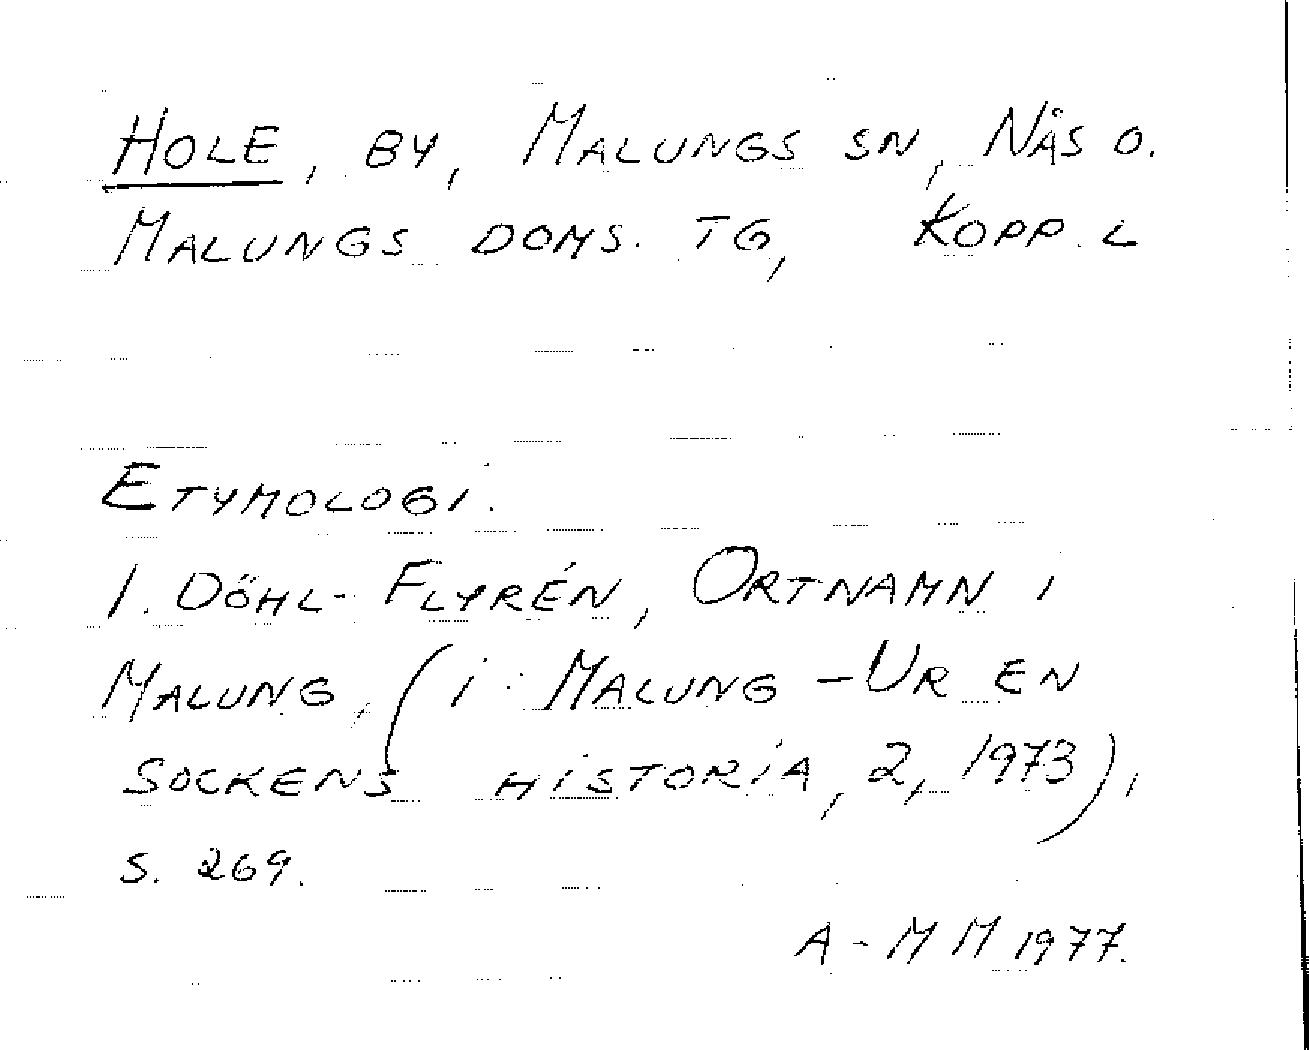 HOLE, BY, MALUNGS SN, NÅS O.
MALUNGS DOMS. TG, KOPP. L
ETYMOLOGI.
I. DÖHL-FLYRÉN, ORTNAMN I
MALUNG, (i: MALUNG – UR EN
SOCKENS HISTORIA, 2, 1973),
S. 269.
A-MM 1977.